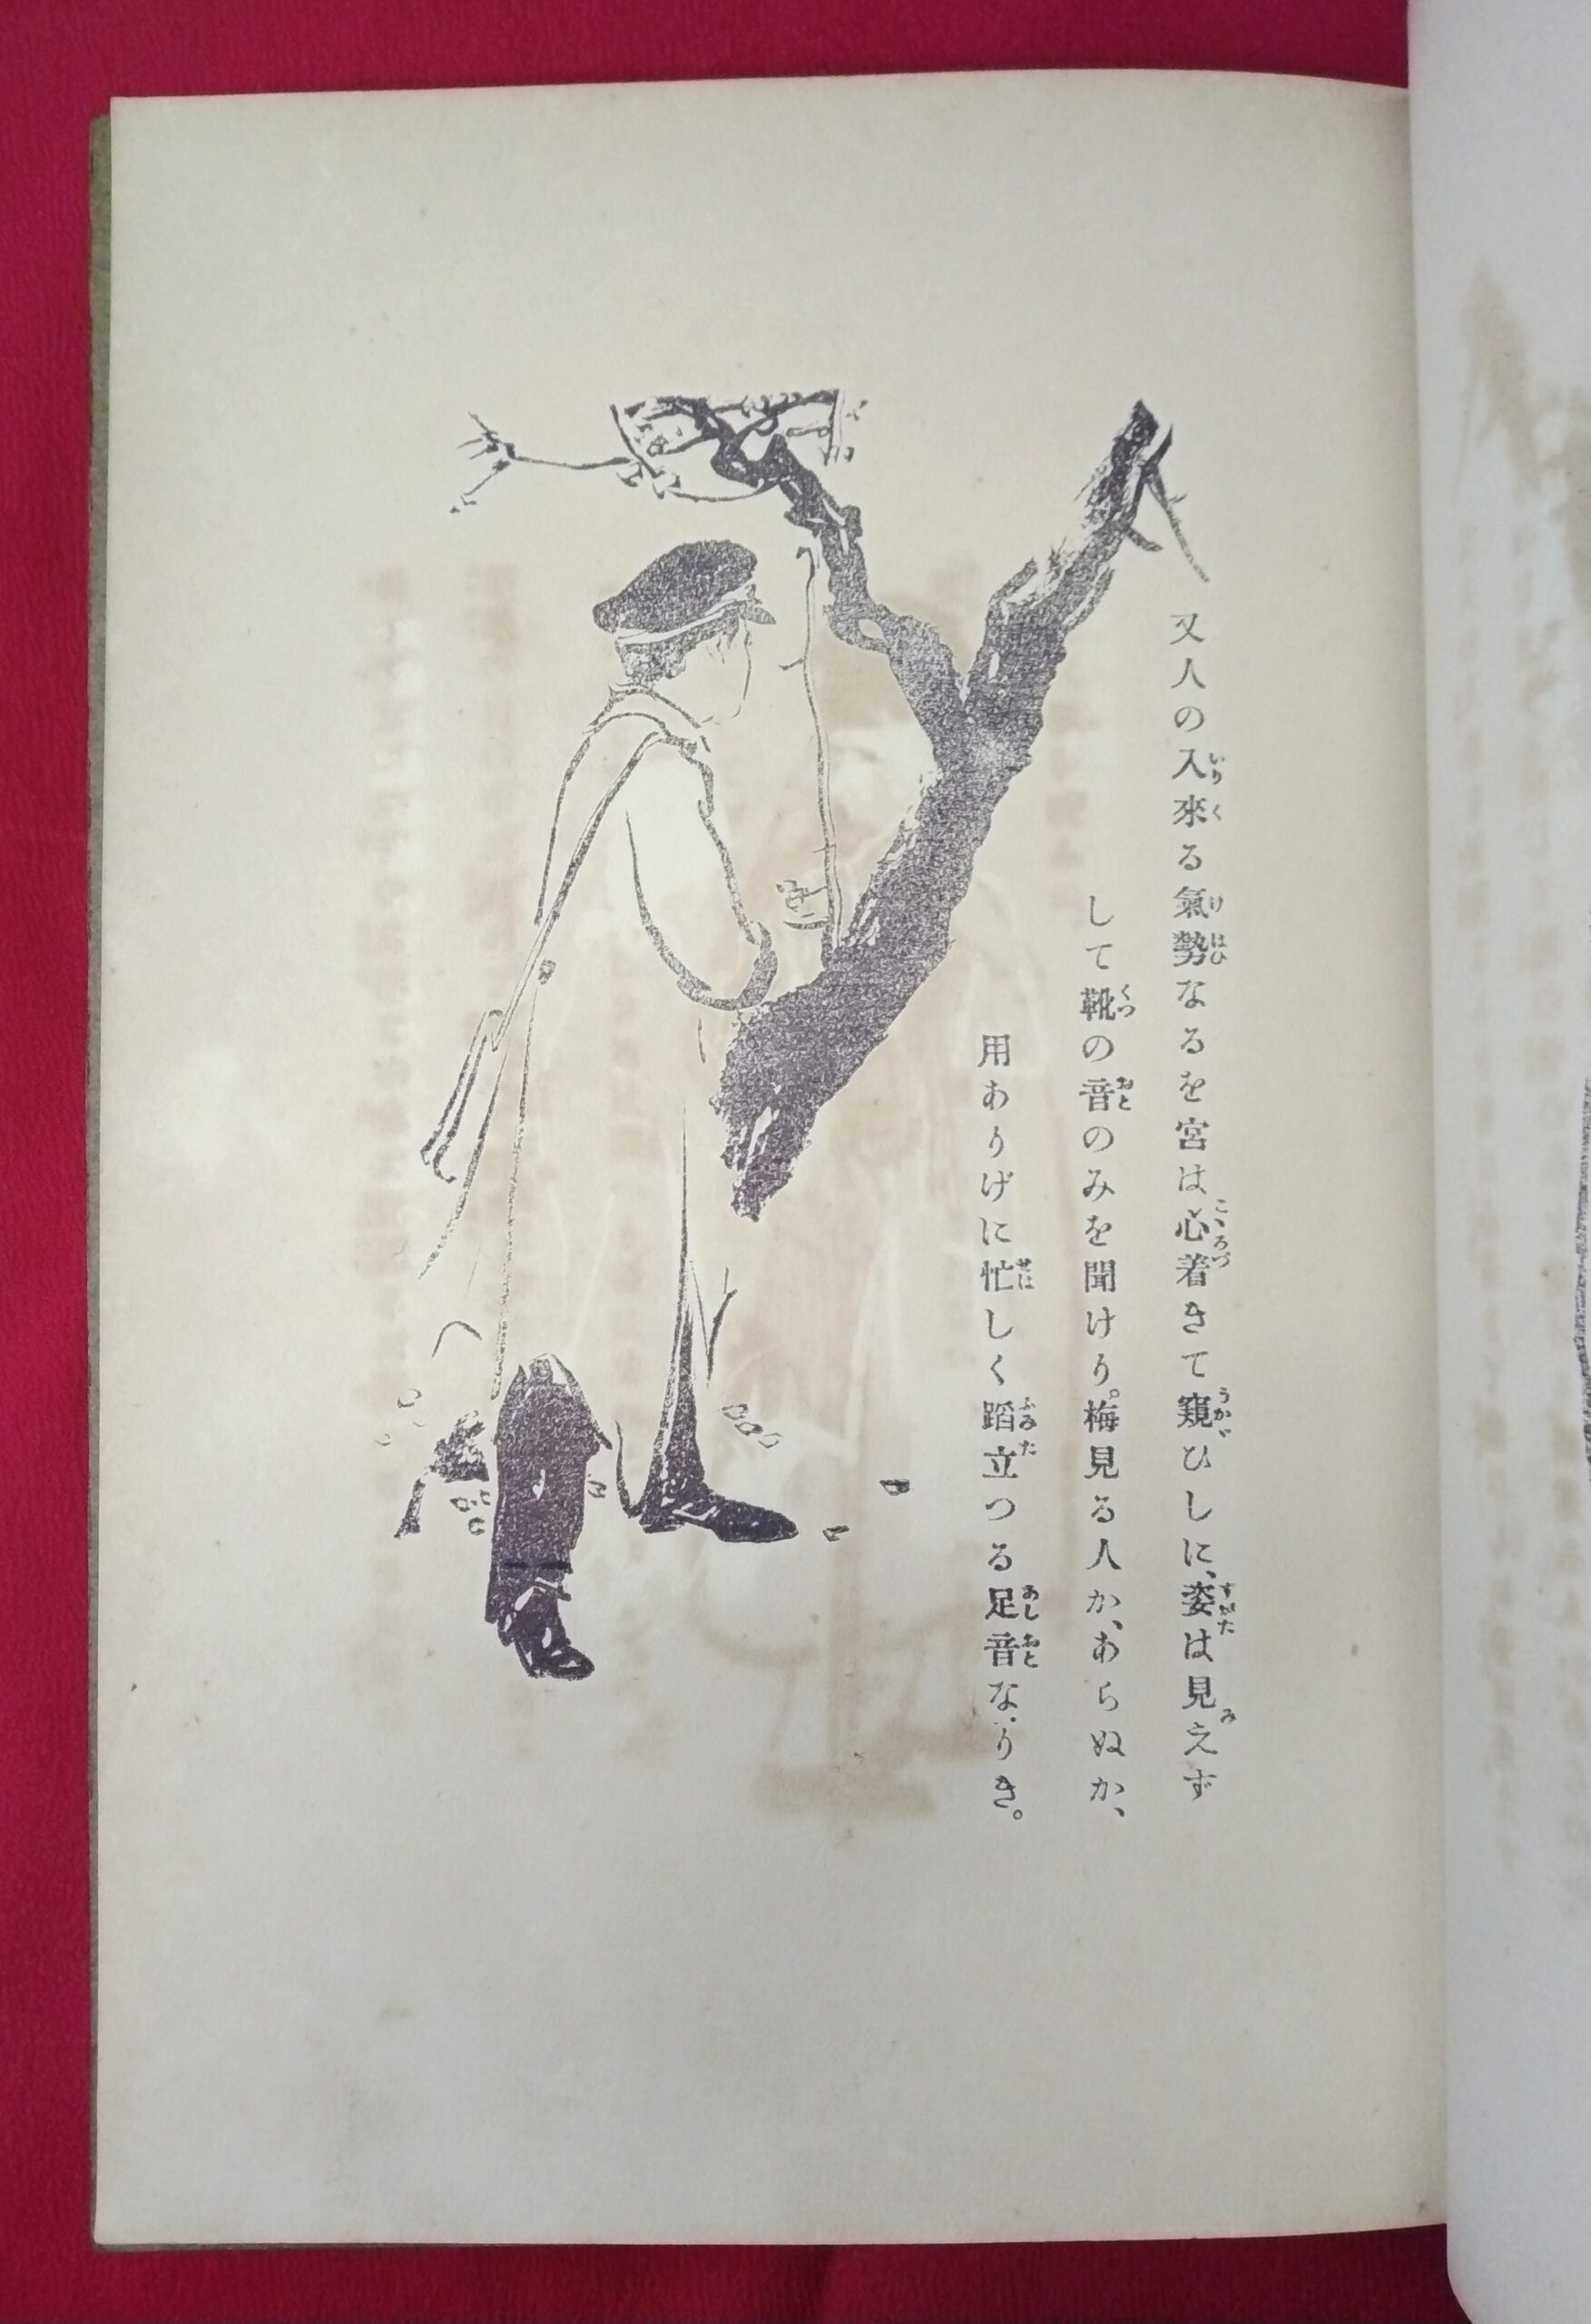 又人の入來る氣勢なるを宮は心着きて窺ひしに、姿は見えず
して靴の音のみを聞けり。梅見る人か、あらぬか、
用ありげに忙しく蹈立つる足音なりき。